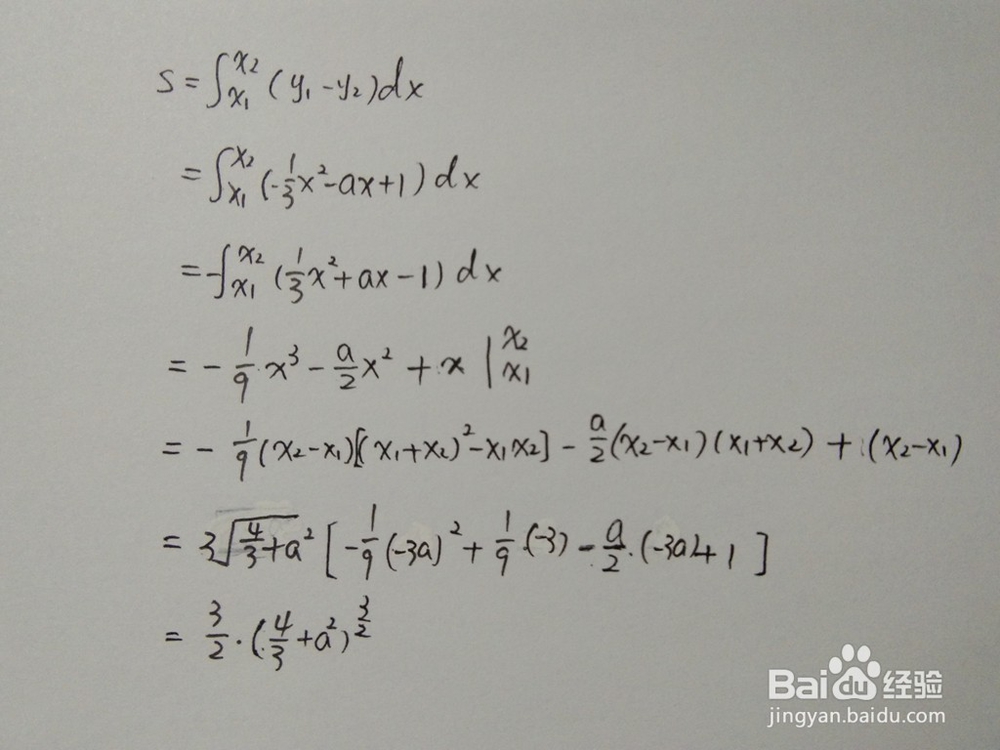 S = ∫_{x₁}^{x₂} (y₁ - y₂) dx
= ∫_{x₁}^{x₂} (-1/3 x² - ax + 1) dx
= -∫_{x₁}^{x₂} (1/3 x² + ax - 1) dx
= - 1/9 x³ - a/2 x² + x |_{x₁}^{x₂}
= - 1/9 (x₂ - x₁)[(x₁ + x₂)² - x₁x₂] - a/2 (x₂ - x₁)(x₁ + x₂) + (x₂ - x₁)
= 3√(4/3 + a²) [-1/9 (-3a)² + 1/9 · (-3) - a/2 · (-3a) + 1]
= 3/2 · (4/3 + a²)^{3/2}
Baidu 经验
jingyan.baidu.com